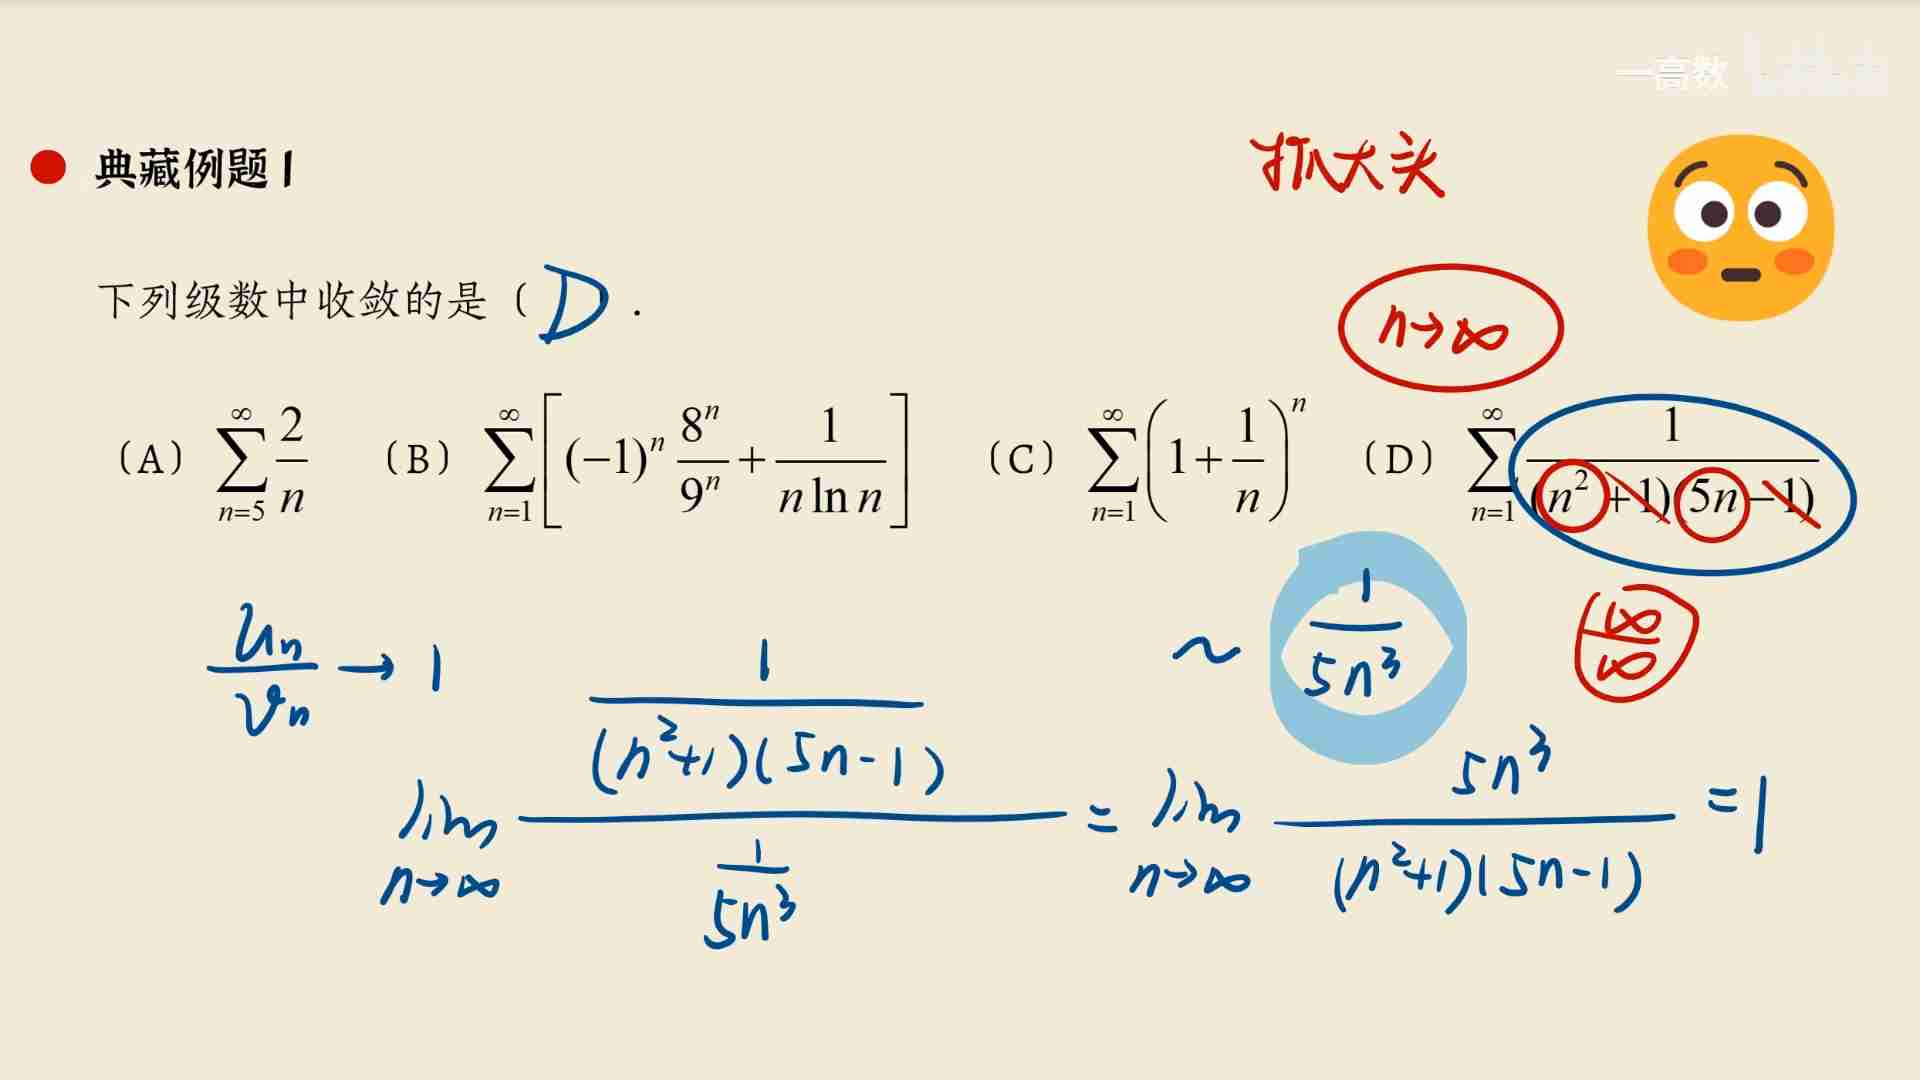 一高数
抓大头
典藏例题1
下列级数中收敛的是（ D .
n→∞
（A） ∑_{n=5}^{∞} 2/n （B） ∑_{n=1}^{∞} [(−1)^n 8^n/9^n + 1/(n ln n)] （C） ∑_{n=1}^{∞} (1+1/n)^n （D） ∑_{n=1}^{∞} 1/((n²+1)(5n−1))
u_n/v_n → 1
~ 1/(5n³)
∞/∞
lim_{n→∞} (1/((n²+1)(5n-1)))/(1/(5n³)) = lim_{n→∞} 5n³/((n²+1)(5n-1)) = 1